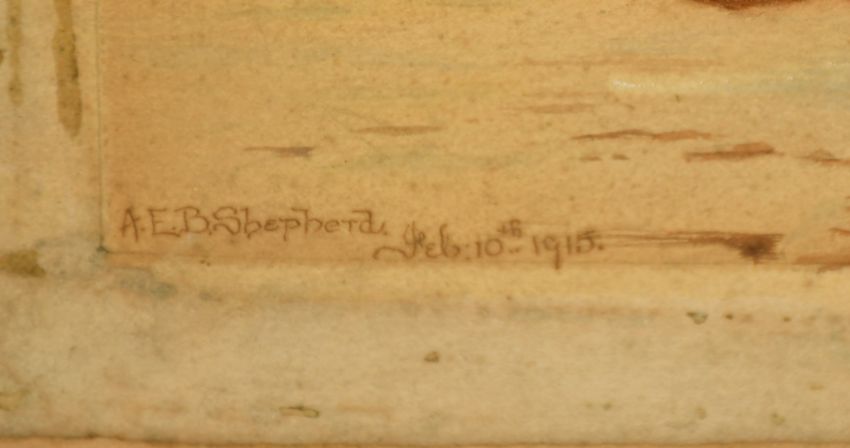 A.E.B. Shepherd. Feb: 10th 1915.